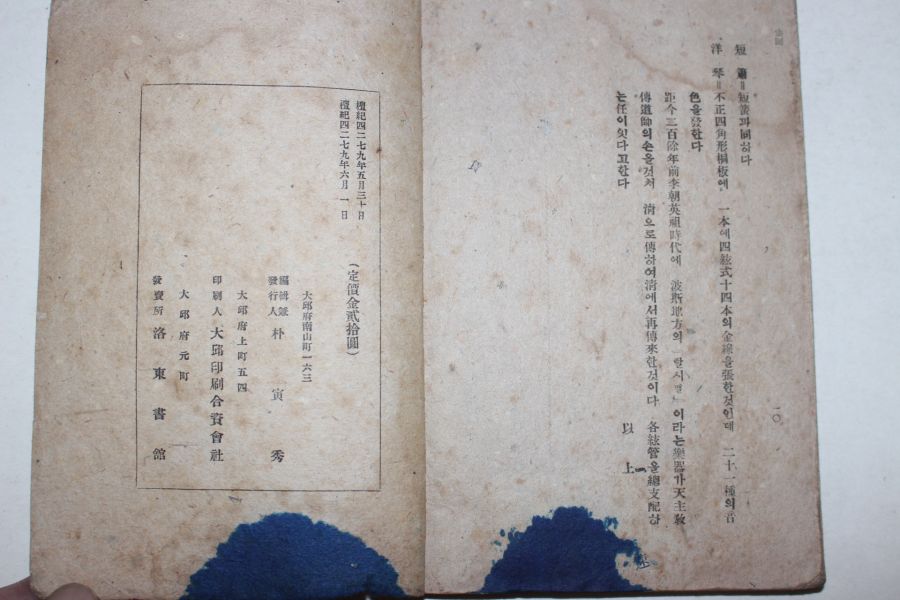 短簫=短簫과同하다
洋琴=不正四角形桐板에 一本에四絃式十四本의金線을張한것인데 二十一種의音
色을發한다
距今三百餘年前李朝英祖時代에 波斯地方의 이라는樂器가天主敎
傳道師의손을것처 淸으로傳하여淸에서再傳來한것이다 各絃管을總支配하
는任이잇다고한다
以上
一〇
檀紀四二七九年五月三十日
檀紀四二七九年六月一日
(定價金貳拾圓)
大邱府南山町一六三
編輯兼
發行人 朴寅秀
大邱府上町五四
印刷人 大邱印刷合資會社
大邱府元町
發賣所 洛東書館